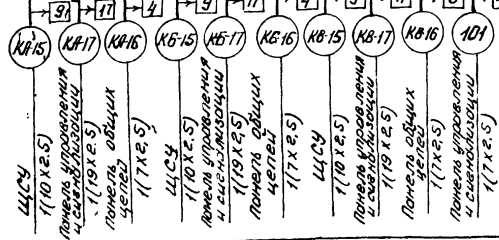 9 17 4 9 11 4
КА-15 КА-17 КА-16 КБ-15 КБ-17 КБ-16 КВ-15 КВ-17 КВ-16 101
ЩСУ
1(10×2,5)
Понель управления
и сигнализации
1(19×2,5)
Понель общих
цепей
1(7×2,5)
ЩСУ
1(10×2,5)
Понель управления
и сигнализации
1(19×2,5)
Понель общих
цепей
1(7×2,5)
ЩСУ
1(10×2,5)
Понель управления
и сигнализации
1(19×2,5)
Понель общих
цепей
1(7×2,5)
Понель управления
и сигнализации
1(7×2,5)